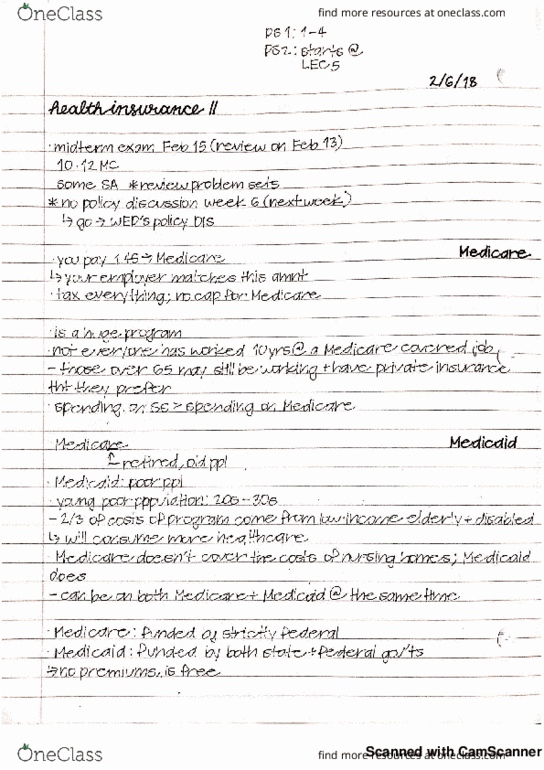 OneClass
find more resources at oneclass.com
PS1: 1-4
PS2: starts @
LEC 5
2/6/18
health insurance II
· midterm exam Feb 15 (review on Feb 13)
10-12 MC
some SA *review problem sets
* no policy discussion week 6 (next week)
↳ go → WED's policy DIS
· you pay 1.45 → Medicare
Medicare
↳ your employer matches this amnt
· tax everything; no cap for Medicare
· is a huge program
· not everyone has worked 10yrs @ a Medicare covered job
- those over 65 may still be working + have private insurance
tht they prefer
· spending on SS > spending on Medicare
· Medicare
Medicaid
↑ retired, old ppl
· Medicaid: poor ppl
· young poor population: 20s-30s
- 2/3 of costs of program come from low-income elderly + disabled
↳ will consume more healthcare
· Medicare doesn't cover the costs of nursing homes; Medicaid
does
- can be on both Medicare + Medicaid @ the same time
· Medicare: funded by strictly federal
· Medicaid: funded by both state + federal gov'ts
→ no premiums, is free
OneClass
find more resources at oneclass.com
Scanned with CamScanner